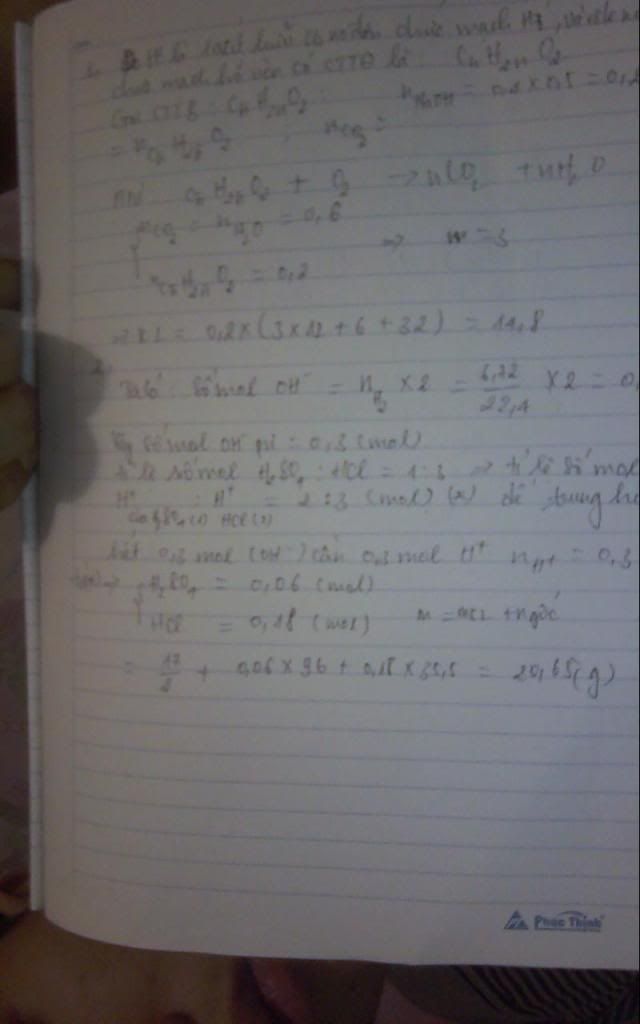 1. H là axit hữu cơ no đơn chức mạch hở, và este no
chức mạch hở nên có CTTQ là: CnH2nO2
Gọi CTTB: Cn̄H2n̄O2: nNaOH = 0,4 × 0,5 = 0,2
= nCn̄H2n̄O2 ; nCO2 =
Cn̄H2n̄O2 + O2 → nCO2 + nH2O
nCO2 = nH2O = 0,6
=> n = 3
nCn̄H2n̄O2 = 0,2
= 0,2 × (3×12 + 6 + 32) = 14,8
2. Ta có: số mol OH⁻ = nH2 × 2 = /22,4 × 2 = 0,
số mol OH⁻ = 0,3 (mol)
tỉ lệ số mol H2SO4 : HCl = 1:3 => tỉ lệ số mol
H⁺ : H⁺ = 2:3 (mol) để trung
HCl
hết 0,3 mol (OH⁻) cần 0,3 mol H⁺ nH⁺ = 0,3
=> H2SO4 = 0,06 (mol)
HCl = 0,18 (mol) m = mKL + m gốc
= /2 + 0,06 × 96 + 0,18 × 35,5 = 20,65 (g)
Phúc Thịnh